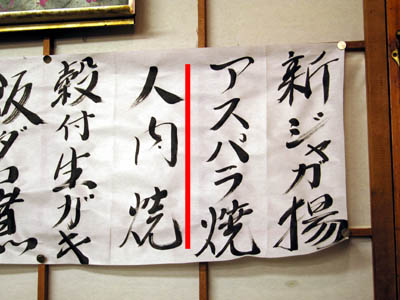 新ジャガ揚
アスパラ焼
人肉焼
殻付生ガキ
飯ダコ煮